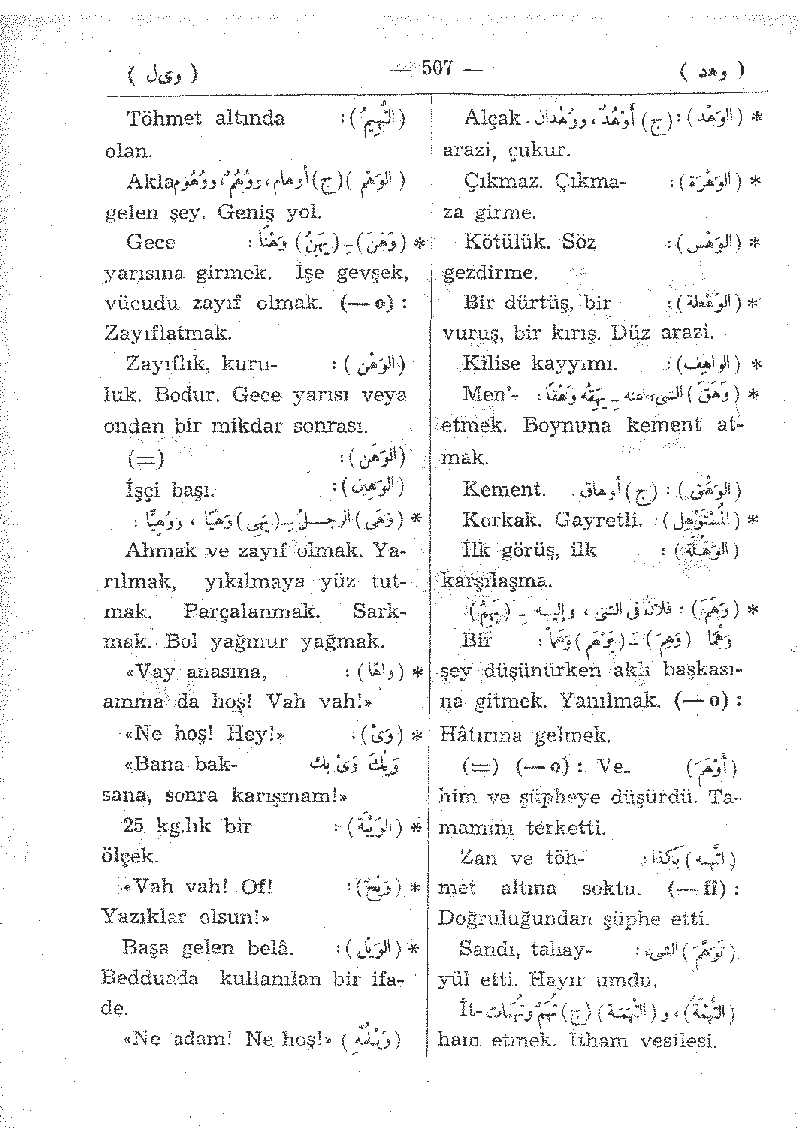 ( وهد ) — 507 — ( ويل )
* (الوَهْد) : (ج) أَوْهُدٌ، وَوُهْدَان. Alçak
arazi, çukur.
* (الوَهْرَة) : Çıkmaz. Çıkma-
za girme.
* (الوَهْس) : Kötülük. Söz
gezdirme.
* (الوَهْطَة) : Bir dürtüş, bir
vuruş, bir kırış. Düz arazi.
* (الواهِف) : Kilise kayyımı.
* (وَهَقَ) الشيءَ عنه ـ يَهِقُه وَهْقًا : Men'-
etmek. Boynuna kement at-
mak.
(الوَهَق) : (ج) أوهاق. Kement.
* (المُسْتَوْهِل) : Korkak. Gayretli.
(الوَهْلَة) : İlk görüş, ilk
karşılaşma.
* (وَهَمَ) : فلانٌ في الشيء ، وإليه ـ (يَهِمُ)
وَهْمًا (وَهِمَ) ـ (يَوْهَم) وَهَمًا : Bir
şey düşünürken aklı başkası-
na gitmek. Yanılmak. (— o) :
Hâtırına gelmek.
(أَوْهَمَ) (=) (— o) : Ve-
him ve şüpheye düşürdü. Ta-
mamını terketti.
(اتَّهمه) بكذا : Zan ve töh-
met altına soktu. (— fî) :
Doğruluğundan şüphe etti.
(تَوَهَّمَ) الشيء : Sandı, tahay-
yül etti. Hayır umdu.
(التُّهْمَة) ، و(التُّهَمَة) (ج) تُهَمٌ وتُهَمات İt-
ham etmek. İtham vesilesi.
(التَّهِيمُ) : Töhmet altında
olan.
(الوَهْم) (ج) أوهام، وَوُهُمٌ، وَوُهُوم Akla
gelen şey. Geniş yol.
* (وَهَنَ) ـ (يَهِنُ) وَهْنًا : Gece
yarısına girmek. İşe gevşek,
vücudu zayıf olmak. (— o) :
Zayıflatmak.
(الوَهْن) : Zayıflık, kuru-
luk. Bodur. Gece yarısı veya
ondan bir mikdar sonrası.
(الوَهَن) : (=)
(الوَهِين) : İşçi başı.
* (وَهَى) الرجلُ ـ (يَهِي) وَهْيًا ، وَوُهِيًّا :
Ahmak ve zayıf olmak. Ya-
rılmak, yıkılmaya yüz tut-
mak. Parçalanmak. Sark-
mak. Bol yağmur yağmak.
* (واهًا) : «Vay anasına,
amma da hoş! Vah vah!»
* (وَيْ) : «Ne hoş! Hey!»
وَيْكَ وَيْ بك «Bana bak-
sana, sonra karışmam!»
* (الوَيْبَة) : 25 kg.lık bir
ölçek.
* (وَيْحٌ) : «Vah vah! Of!
Yazıklar olsun!»
* (الوَيْل) : Başa gelen belâ.
Bedduada kullanılan bir ifa-
de.
(وَيْلُمِّهِ) «Ne adam! Ne hoş!»